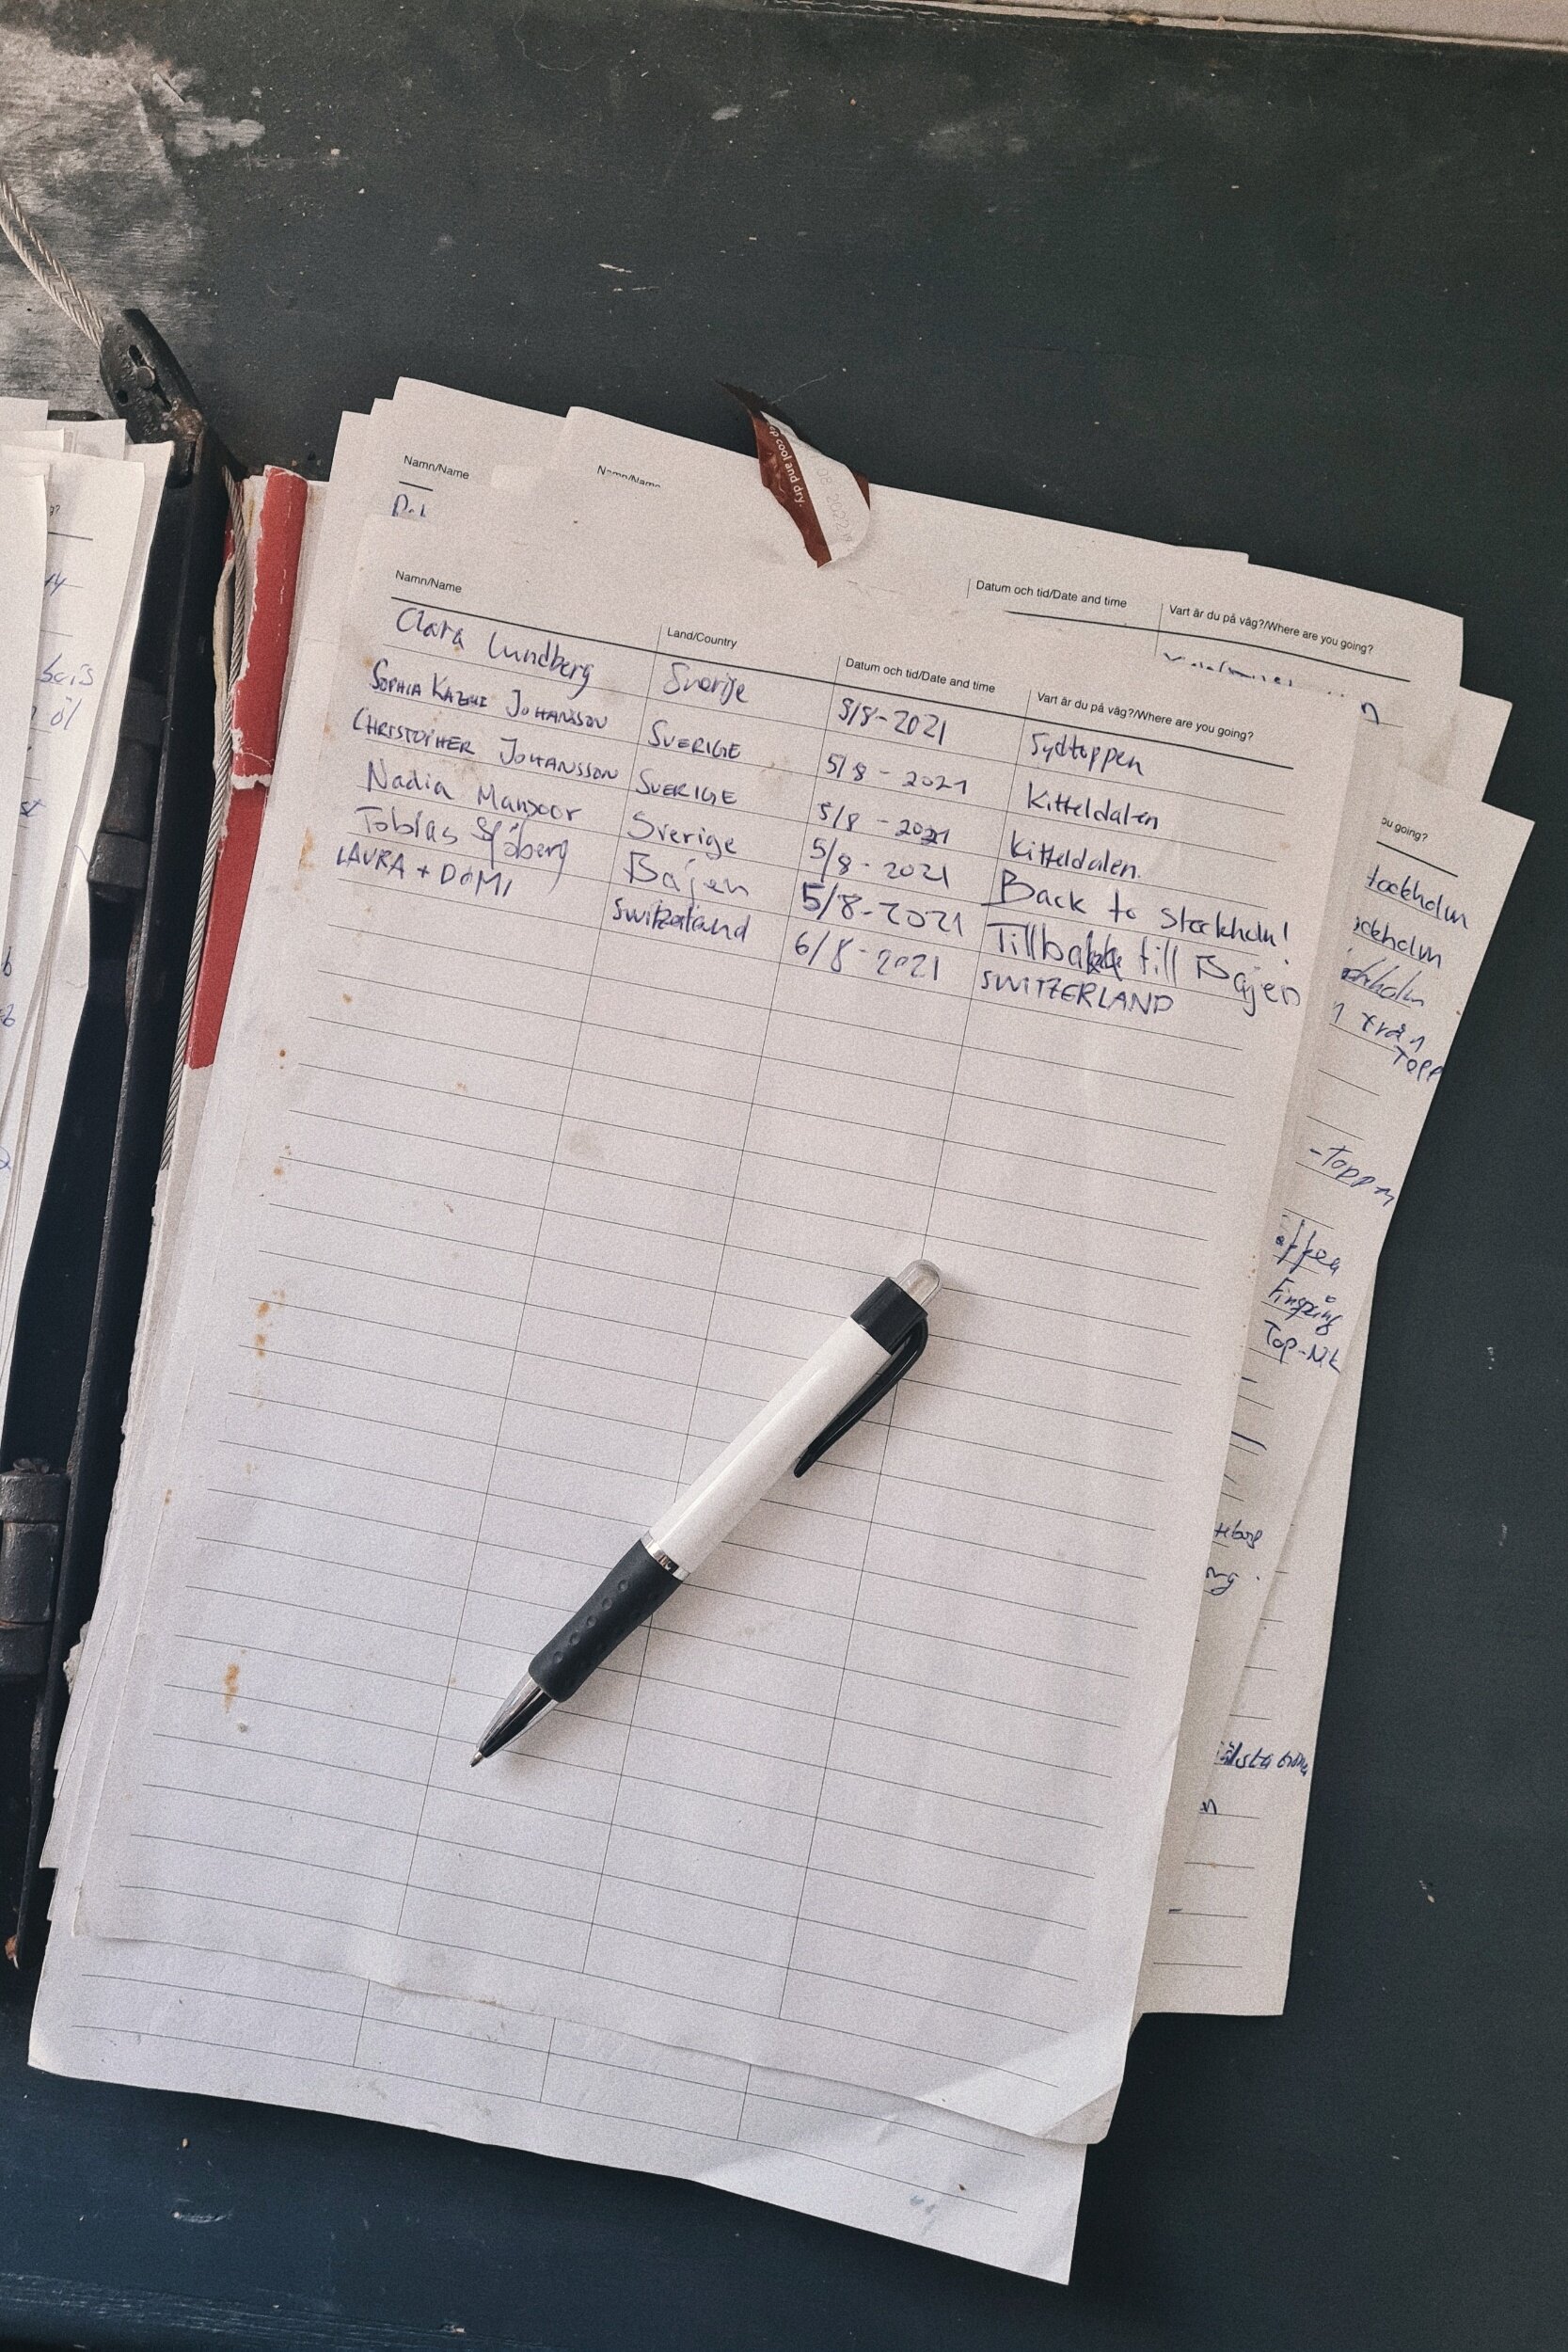 Namn/Name
Namn/Name
p cool and dry.
Datum och tid/Date and time
Vart är du på väg?/Where are you going?
Namn/Name Land/Country Datum och tid/Date and time Vart är du på väg?/Where are you going?
Clara Lundberg Sverige 5/8-2021 Sydtoppen
SOPHIA KAZMI JOHANSSON SVERIGE 5/8 - 2021 Kitteldalen
CHRISTOPHER JOHANSSON SVERIGE 5/8 - 2021 Kitteldalen.
Nadia Mansoor Sverige 5/8 - 2021 Back to Stockholm!
Tobias Sjöberg Bajen 5/8-2021 Tillbaka till Bajen
LAURA + DOMI Switzerland 6/8-2021 SWITZERLAND
ou going?
tockholm
ockholm
TOPP
-Toppen
Finspång
Top-Nik
teborg